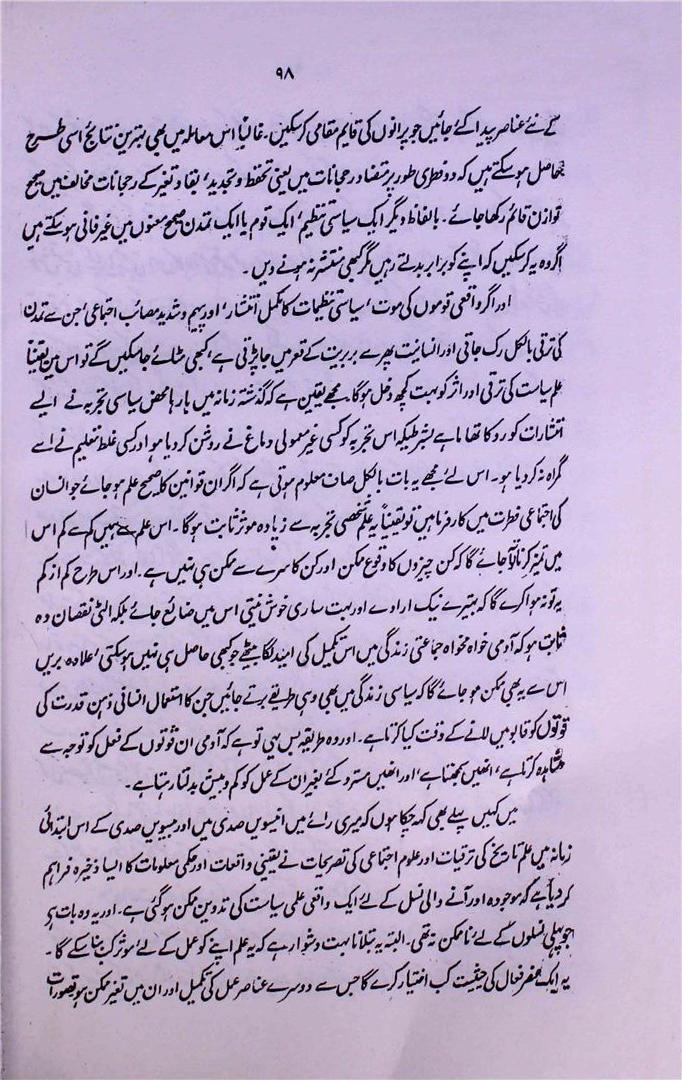 ۹۸
کے نئے عناصر پیدا کئے جائیں جو پرانوں کی قایم مقامی کرسکیں۔ غالباً اس معاملہ میں بھی بہترین نتائج اسی طرح
حاصل ہوسکتے ہیں کہ دو فطری طور پر متضاد رجحانات میں یعنی تحفظ و تجدید، بقا و تغیر کے رجحانات مخالف میں صحیح
توازن قائم رکھا جائے۔ بالفاظ دیگر ایک سیاسی تنظیم، ایک قوم یا ایک تمدن صحیح معنوں میں غیر فانی ہوسکتے ہیں
اگر وہ یہ کرسکیں کہ اپنے کو برابر بدلتے رہیں مگر کبھی منتشر نہ ہونے دیں۔
اور اگر واقعی قوموں کی موت، سیاسی تنظیمات کا مکمل انتشار، اور پیہم و شدید مصائب اجتماعی، جن سے تمدن
کی ترقی بالکل رک جاتی اور انسانیت پھر سے بربریت کے قعر میں جا پڑتی ہے، کبھی ہٹائے جاسکیں گے تو اس میں یقیناً
علم سیاست کی ترقی اور اثر کو بہت کچھ دخل ہوگا۔ مجھے یقین ہے کہ گذشتہ زمانہ میں بارہا محض سیاسی تجربہ نے ایسے
انتشارات کو روکا تھاما ہے بشرطیکہ اس تجربہ کو کسی غیر معمولی دماغ نے روشن کردیا ہو اور کسی غلط تعلیم نے اسے
گمراہ نہ کردیا ہو۔ اس لئے مجھے یہ بات بالکل صاف معلوم ہوتی ہے کہ اگر ان قوانین کا صحیح علم ہوجائے جو انسان
کی اجتماعی فطرت میں کارفرما ہیں تو یقیناً یہ علم شخصی تجربہ سے زیادہ موثر ثابت ہوگا۔ اس علم سے ہمیں کم سے کم اس
میں تمیز کرنا آجائے گا کہ کن چیزوں کا وقوع ممکن اور کن کا سرے سے ممکن ہی نہیں ہے۔ اور اس طرح کم از کم
یہ تو نہ ہوا کرے گا کہ بہتیرے نیک ارادے اور بہت ساری خوش نیتی اس میں ضائع جائے بلکہ الٹی نقصان دہ
ثابت ہو کہ آدمی خواہ مخواہ جماعتی زندگی میں اس تکمیل کی امید لگا بیٹھے جو کبھی حاصل ہی نہیں ہوسکتی، علاوہ بریں
اس سے یہ بھی ممکن ہوجائے گا کہ سیاسی زندگی میں بھی وہی طریقے برتے جائیں جن کا استعمال انسانی ذہن قدرت کی
قوتوں کو قابو میں لانے کے وقت کیا کرتا ہے۔ اور وہ طریقہ بس یہی تو ہے کہ آدمی ان قوتوں کے فعل کو توجہ سے
مشاہدہ کرتا ہے، انھیں سمجھتا ہے، اور انھیں مسترد کئے بغیر ان کے عمل کو کم و بیش بدلتا رہتا ہے۔
میں کہیں پہلے بھی کہہ چکا ہوں کہ میری رائے میں انیسویں صدی میں اور بیسویں صدی کے اس ابتدائی
زمانہ میں علم تاریخ کی ترقیات اور علوم اجتماعی کی تصریحات نے یقینی واقعات اور حکمی معلومات کا ایسا ذخیرہ فراہم
کردیا ہے کہ موجودہ اور آنے والی نسل کے لئے ایک واقعی علمی سیاست کی تدوین ممکن ہوگئی ہے۔ اور یہ وہ بات ہے
جو پہلی نسلوں کے لئے ناممکن نہ تھی۔ البتہ یہ بتلانا بہت دشوار ہے کہ یہ علم اپنے کو عمل کے لئے موثر کب بنا سکے گا۔
یہ ایک عنصر فعال کی حیثیت کب اختیار کرے گا جس سے دوسرے عناصر عمل کی تکمیل اور ان میں تغیر ممکن ہو تصورات